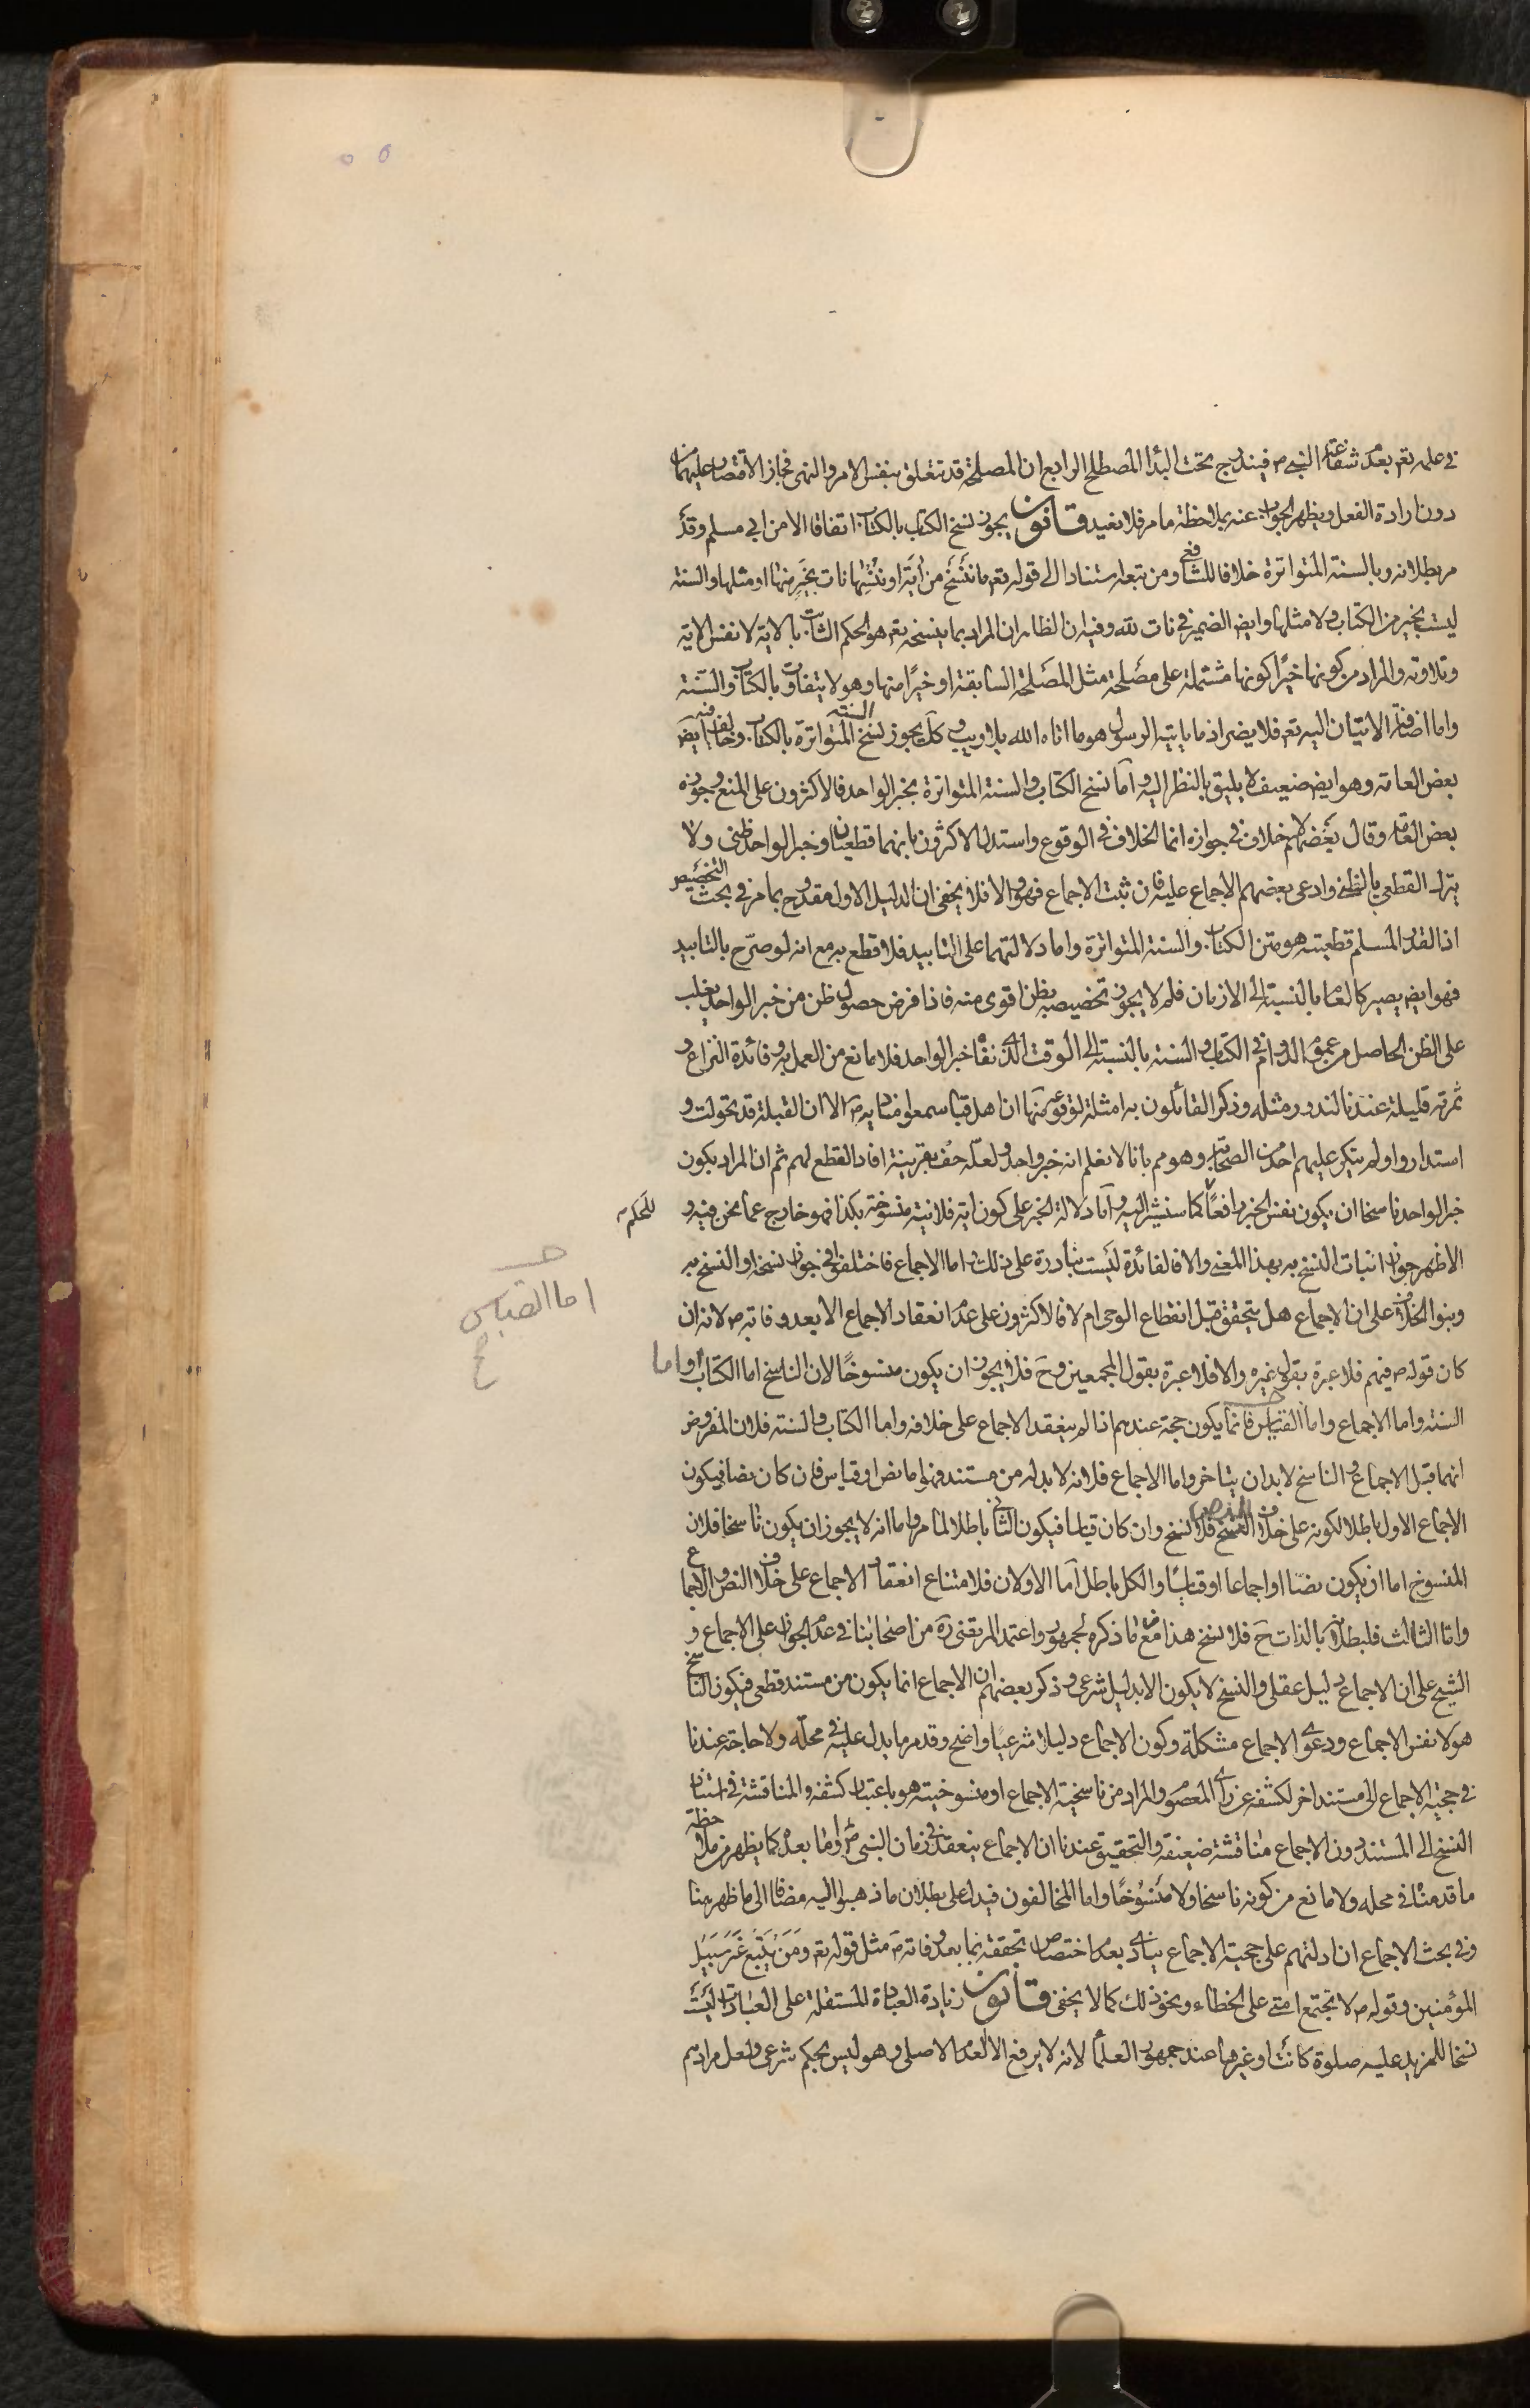 في علمه تعم بعد شفاعة النبي ص فيندرج تحت البدا المصطلح الرابع ان المصلحة قد تتعلق بنفس الامر والنهي فجاز الاقتصار عليهما من
دون ارادة الفعل ويظهر الجواب عنه بملاحظة ما مر فلا نعيد قانون يجوز نسخ الكتاب بالكتاب اتفاقا الا من ابي مسلم وقد
مر بطلانه وبالسنة المتواترة خلافا للشافعي ومن تبعه استنادا الى قوله تعم ما ننسخ من اية او ننسها نات بخير منها او مثلها والسنة
ليست بخير من الكتاب ولا مثلها وايض الضمير في نات لله وفيه ان الظاهر ان المراد بما ينسخه تعم هو الحكم الثابت بالاية لا نفس الاية
وتلاوته والمراد من كونها خيرًا كونها مشتملة على مصلحة مثل المصلحة السابقة او خيرًا منها وهو لا يتفاوت بالكتاب والسنة
واما اضافة الاتيان اليه تعم فلا يضر اذ ما ياتيه الرسول هو ما اتاه الله بلا ريب وكك يجوز نسخ السنة المتواترة بالكتاب وخالف فيه ايض
بعض العامة وهو ايض ضعيف لا يليق بالنظر اليه واما نسخ الكتاب والسنة المتواترة بخبر الواحد فالاكثرون على المنع وجوزه
بعض العامة وقال بعضهم لا خلاف في جوازه انما الخلاف في الوقوع واستدل الاكثرون بانهما قطعيان وخبر الواحد ظني ولا
يترك القطعي بالظني وادعى بعضهم الاجماع عليه فان ثبت الاجماع فهو والا فلا يخفى ان الدليل الاول مقدوح بما مر في بحث التخصيص
اذ القدر المسلم قطعيته هو متن الكتاب والسنة المتواترة واما دلالتهما على التابيد فلا قطع به مع انه لو صرّح بالتابيد
فهو ايض يصير كالعام بالنسبة الى الازمان فلم لا يجوز تخصيصه بظن اقوى منه فاذا فرض حصول ظن من خبر الواحد يغلب
على الظن الحاصل من عموم الدوام في الكتاب والسنة بالنسبة الى الوقت الذي نفاه خبر الواحد فلا مانع من العمل به وفائدة النزاع و
ثمرته قليلة عندنا لندور مثله وذكر القائلون به امثلة لوقوعه منها ان اهل قبا سمعوا مناديه ص الا ان القبلة قد تحولت و
استداروا ولم ينكر عليهم احد من الصحابة وهو مم بانا لا نعلم انه خبر واحد ولعله حف بقرينة افاد القطع لهم ثم ان المراد بكون
خبر الواحد ناسخا ان يكون نفس الخبر رافعًا كما سنشير اليه واما دلالة الخبر على كون اية فلانية منسوخة بكذا فهو خارج عما نحن فيه و
للحكم
الاظهر جواز اثبات النسخ به بهذا المعنى والا فالفائدة ليست بنادرة على ذلك واما الاجماع فاختلفوا في جواز نسخه او النسخ به
وبنوا الخلاف على ان الاجماع هل يتحقق قبل انقطاع الوحي ام لا فالاكثرون على عدم انعقاد الاجماع الا بعد وفاته ص لانه ان
كان قوله ص فيهم فلا عبرة بقول غيره والا فلا عبرة بقول المجمعين وح فلا يجوز ان يكون منسوخًا لان الناسخ اما الكتاب واما
السنة واما الاجماع واما القياس فانما يكون حجة عندهم اذا لم ينعقد الاجماع على خلافه واما الكتاب والسنة فلان المفروض
انهما قبل الاجماع والناسخ لا بد ان يتاخر واما الاجماع فلانه لا بد له من مستند وهو اما نص او قياس فان كان نصا فيكون
الاجماع الاول باطلا لكونه على خلاف النص فلا نسخ وان كان قياسا فيكون الثاني باطلا لما مر واما انه لا يجوز ان يكون ناسخا فلان
المنسوخ اما ان يكون نصّا او اجماعا او قياسًا والكل باطل اما الاولان فلامتناع انعقاد الاجماع على خلاف النص والاجماع
واما الثالث فلبطلانه بالذات ح فلا نسخ هذا مع ما ذكره الجمهور واعتمد المرتضى ره من اصحابنا في عدم الجواز على الاجماع و
الشيخ على ان الاجماع دليل عقلي والنسخ لا يكون الا بدليل شرعي وذكر بعضهم ان الاجماع انما يكون من مستند قطعي فيكون الناسخ
هو لا نفس الاجماع ودعوى الاجماع مشكلة وكون الاجماع دليلا شرعيًا واضح وقد مر ما يدل عليه في محله ولا حاجة عندنا
في حجية الاجماع الى مستند اخر لكشفه عن راي المعصوم والمراد من ناسخية الاجماع او منسوخيته هو باعتبار كشفه والمناقشة في استناد
النسخ الى المستند دون الاجماع مناقشة ضعيفة والتحقيق عندنا ان الاجماع ينعقد في زمان النبي ص وما بعده كما يظهر من ملاحظة
ما قدمناه في محله ولا مانع من كونه ناسخا ولا منسوخًا واما المخالفون فيدل على بطلان ما ذهبوا اليه مضافا الى ما ظهر هنا
وفي بحث الاجماع ان ادلتهم على حجية الاجماع ينادي بعدم اختصاص تحققه بما بعد وفاته ص مثل قوله تعم ومن يتبع غير سبيل
المؤمنين وقوله ص لا تجتمع امتي على الخطاء ونحو ذلك كما لا يخفى قانون زيادة العبادة المستقلة على العبادات ليست
نسخا للمزيد عليه صلوة كانت او غيرها عند جمهور العلما لانه لا يرفع الا العدم الاصلي وهو ليس بحكم شرعي ولعل مرادهم
اما القياس